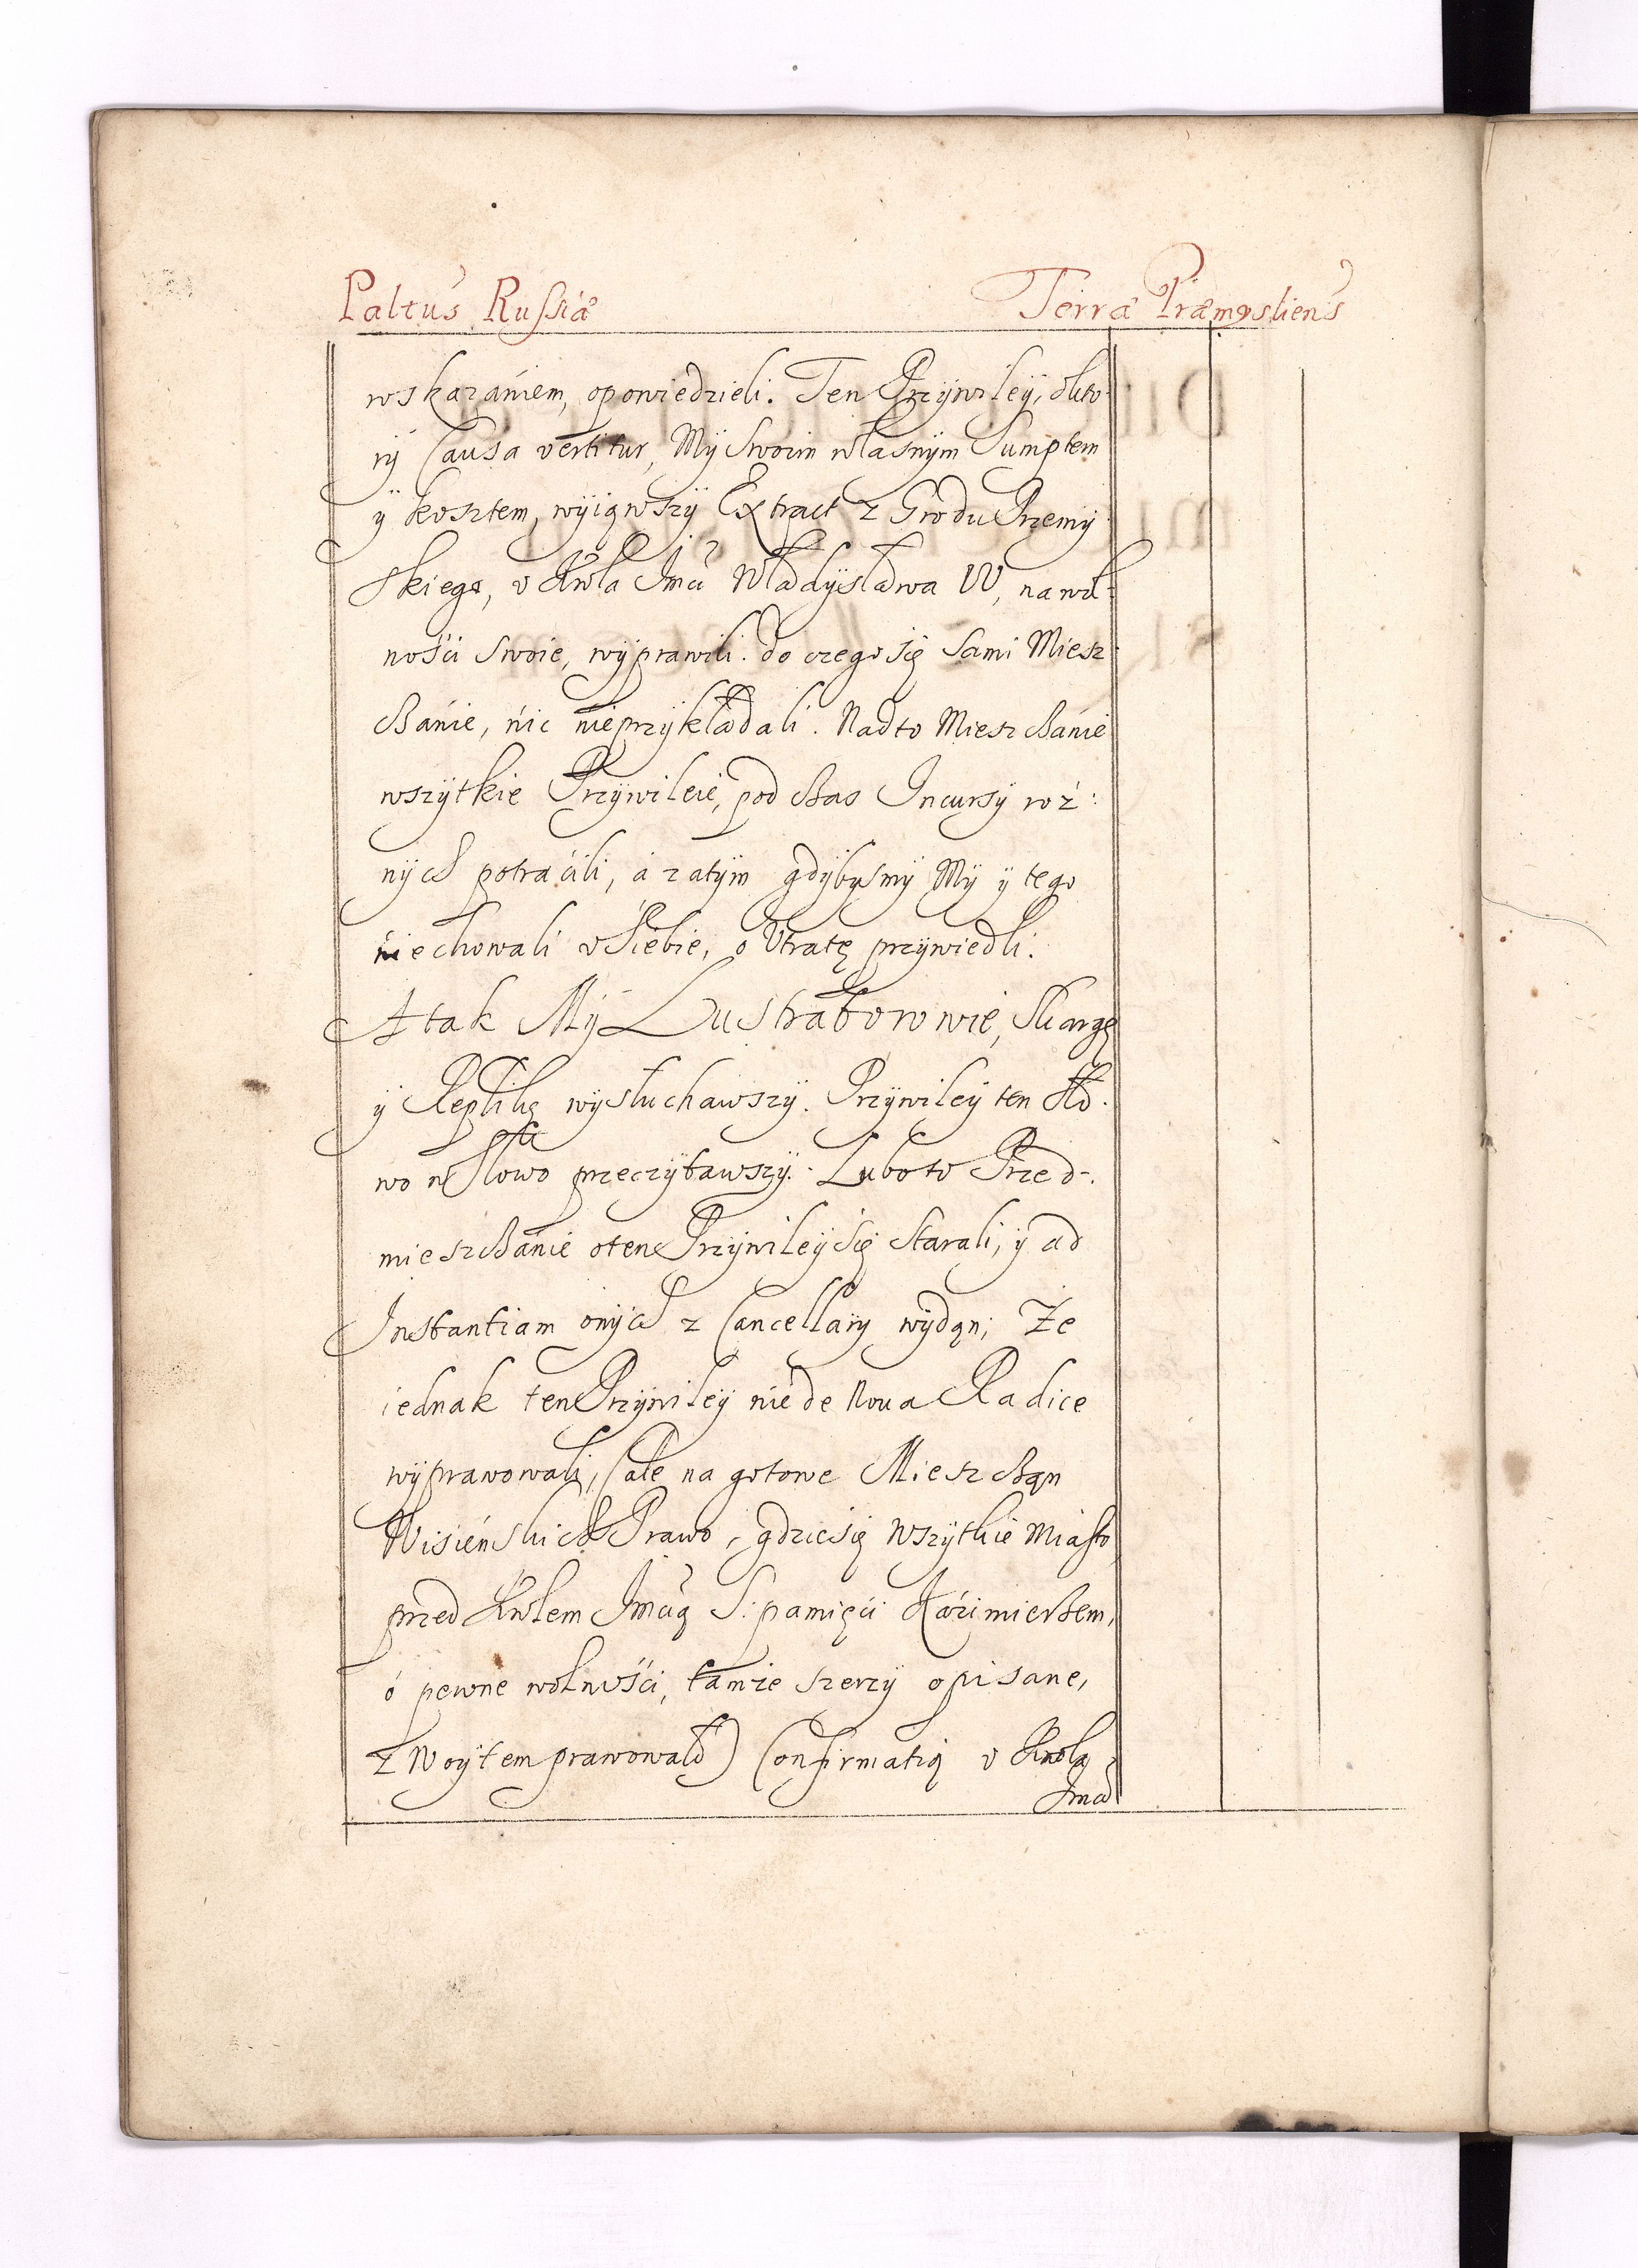 Paltus Russiæ Terræ Præmysliens
wskazániem, opowiedzieli. Ten Przÿwileÿ, októ-
rÿ Causa vertitur, Mÿ Swoim własnÿm Sumptem
ÿ kosztem, wÿiąwszÿ Extract z Grodu Przemÿ
skiego, v Krola Jmći Władÿsława IV, na wol-
nośći swoie, wÿprawili. do czego się sami Miesz
czánie, nic nieprzÿkładali. Nadto Mieszczánie
wszÿtkie Przÿwileie, pod czas Incursÿ roż:
nÿch potraćili, á zatÿm gdÿbÿsmÿ Mÿ ÿ tego
niechowali v Siebie, o Vtratę przÿwiedli.
A tak Mÿ Lustratorowie, Skargę
ÿ Replikę wÿsłuchawszÿ. Przÿwileÿ ten sło-
wo w słowo przeczÿtawszÿ. Lubo to Przed-
mieszczánie oten Przÿwileÿ się starali, ÿ ad
Instantiam onÿch z Cancellarÿ wÿdąn; Że
iednak ten Przÿwileÿ nie de Noua Radice
wÿprawowali, (ale na gotowe Mieszcząn
Wisieńskich Prawo, gdzie się wszÿtkie Miasto
przed Krolem Jmćią S. pamięći Káźimierzem,
ó pewne wolnośći, tamże szerzÿ opisane,
z Woÿtem prawowało) Confirmatią v Krola
Jmći